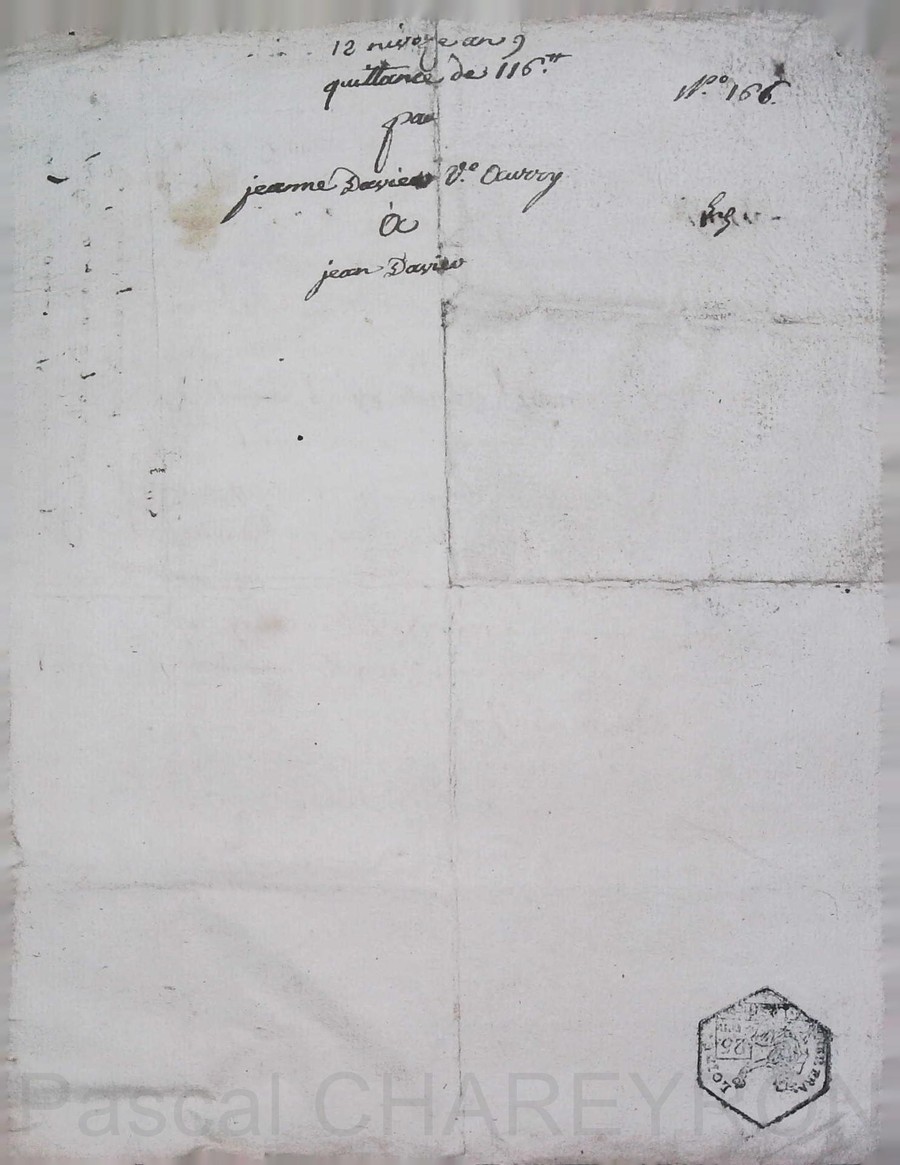 12 nivose an 9
quittance de 116.tt
N.º 166.
par
jeanne Davier V.e Ourry
à
jean Davier
Pascal CHAREYRON